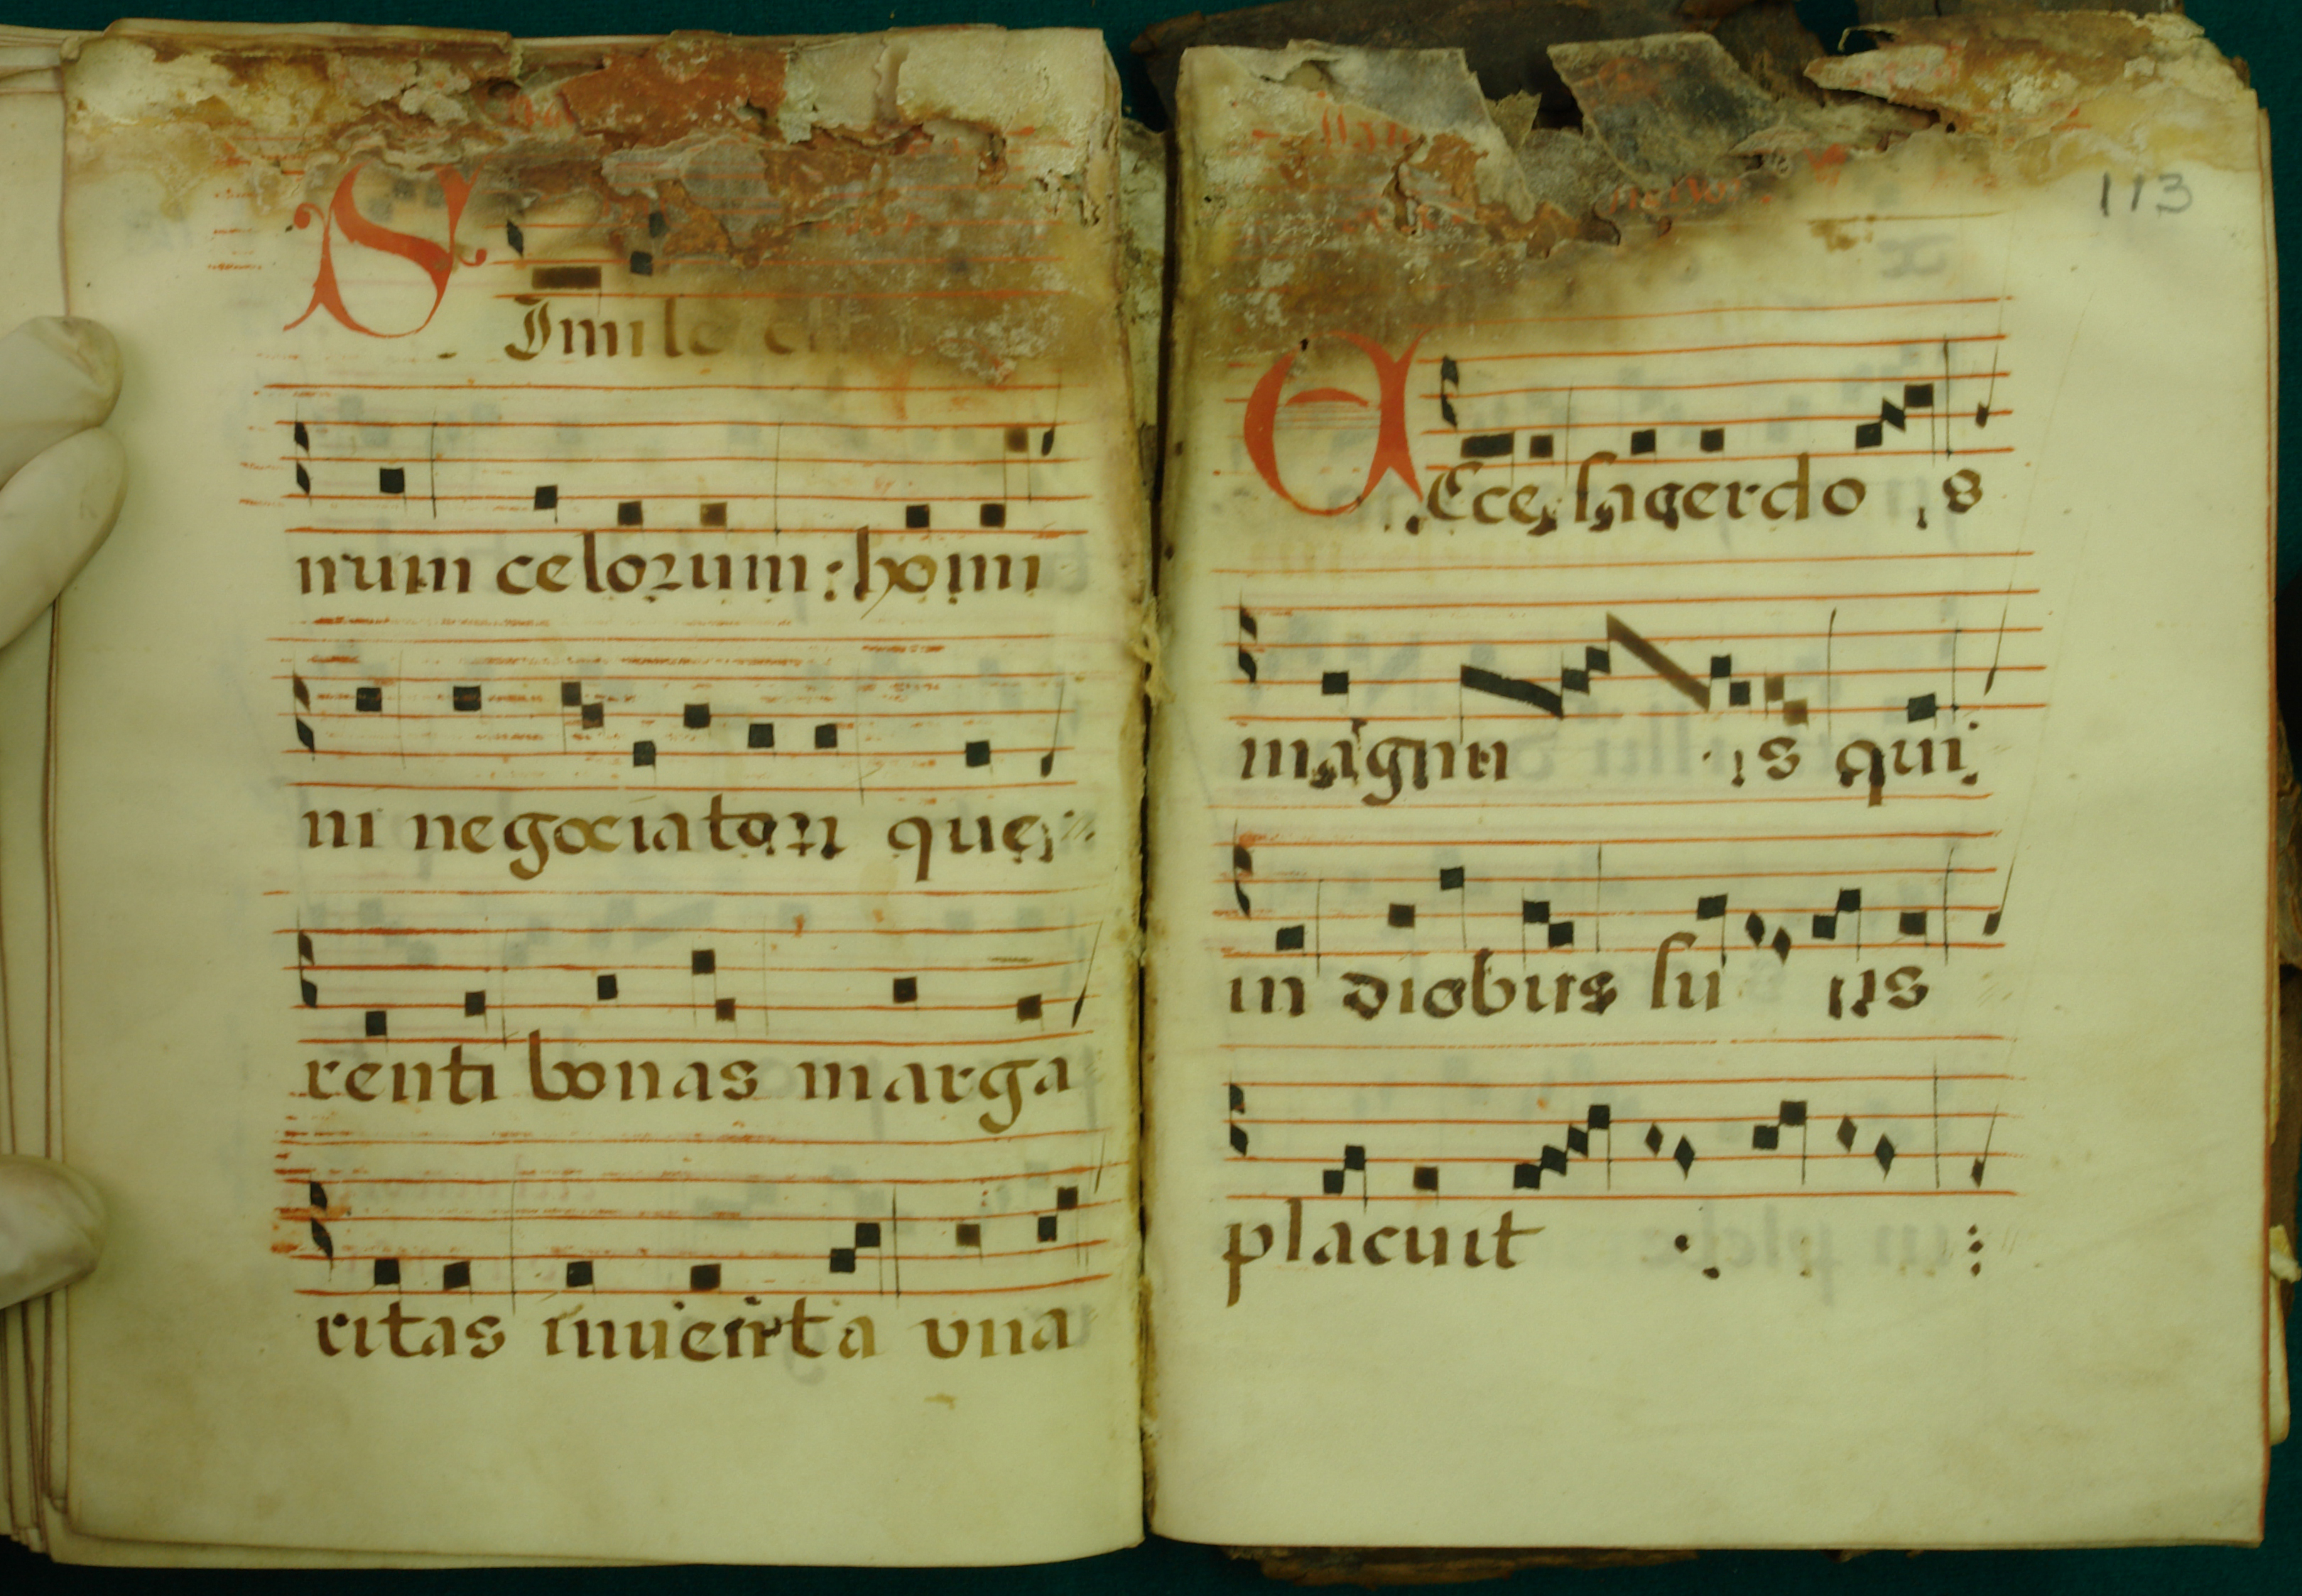 Simile est
num celorum: homi
ni negociatori que
renti bonas marga
ritas inuenta vna
113
Ecce sacerdo s
magnu s qui
in diebus su is
placuit